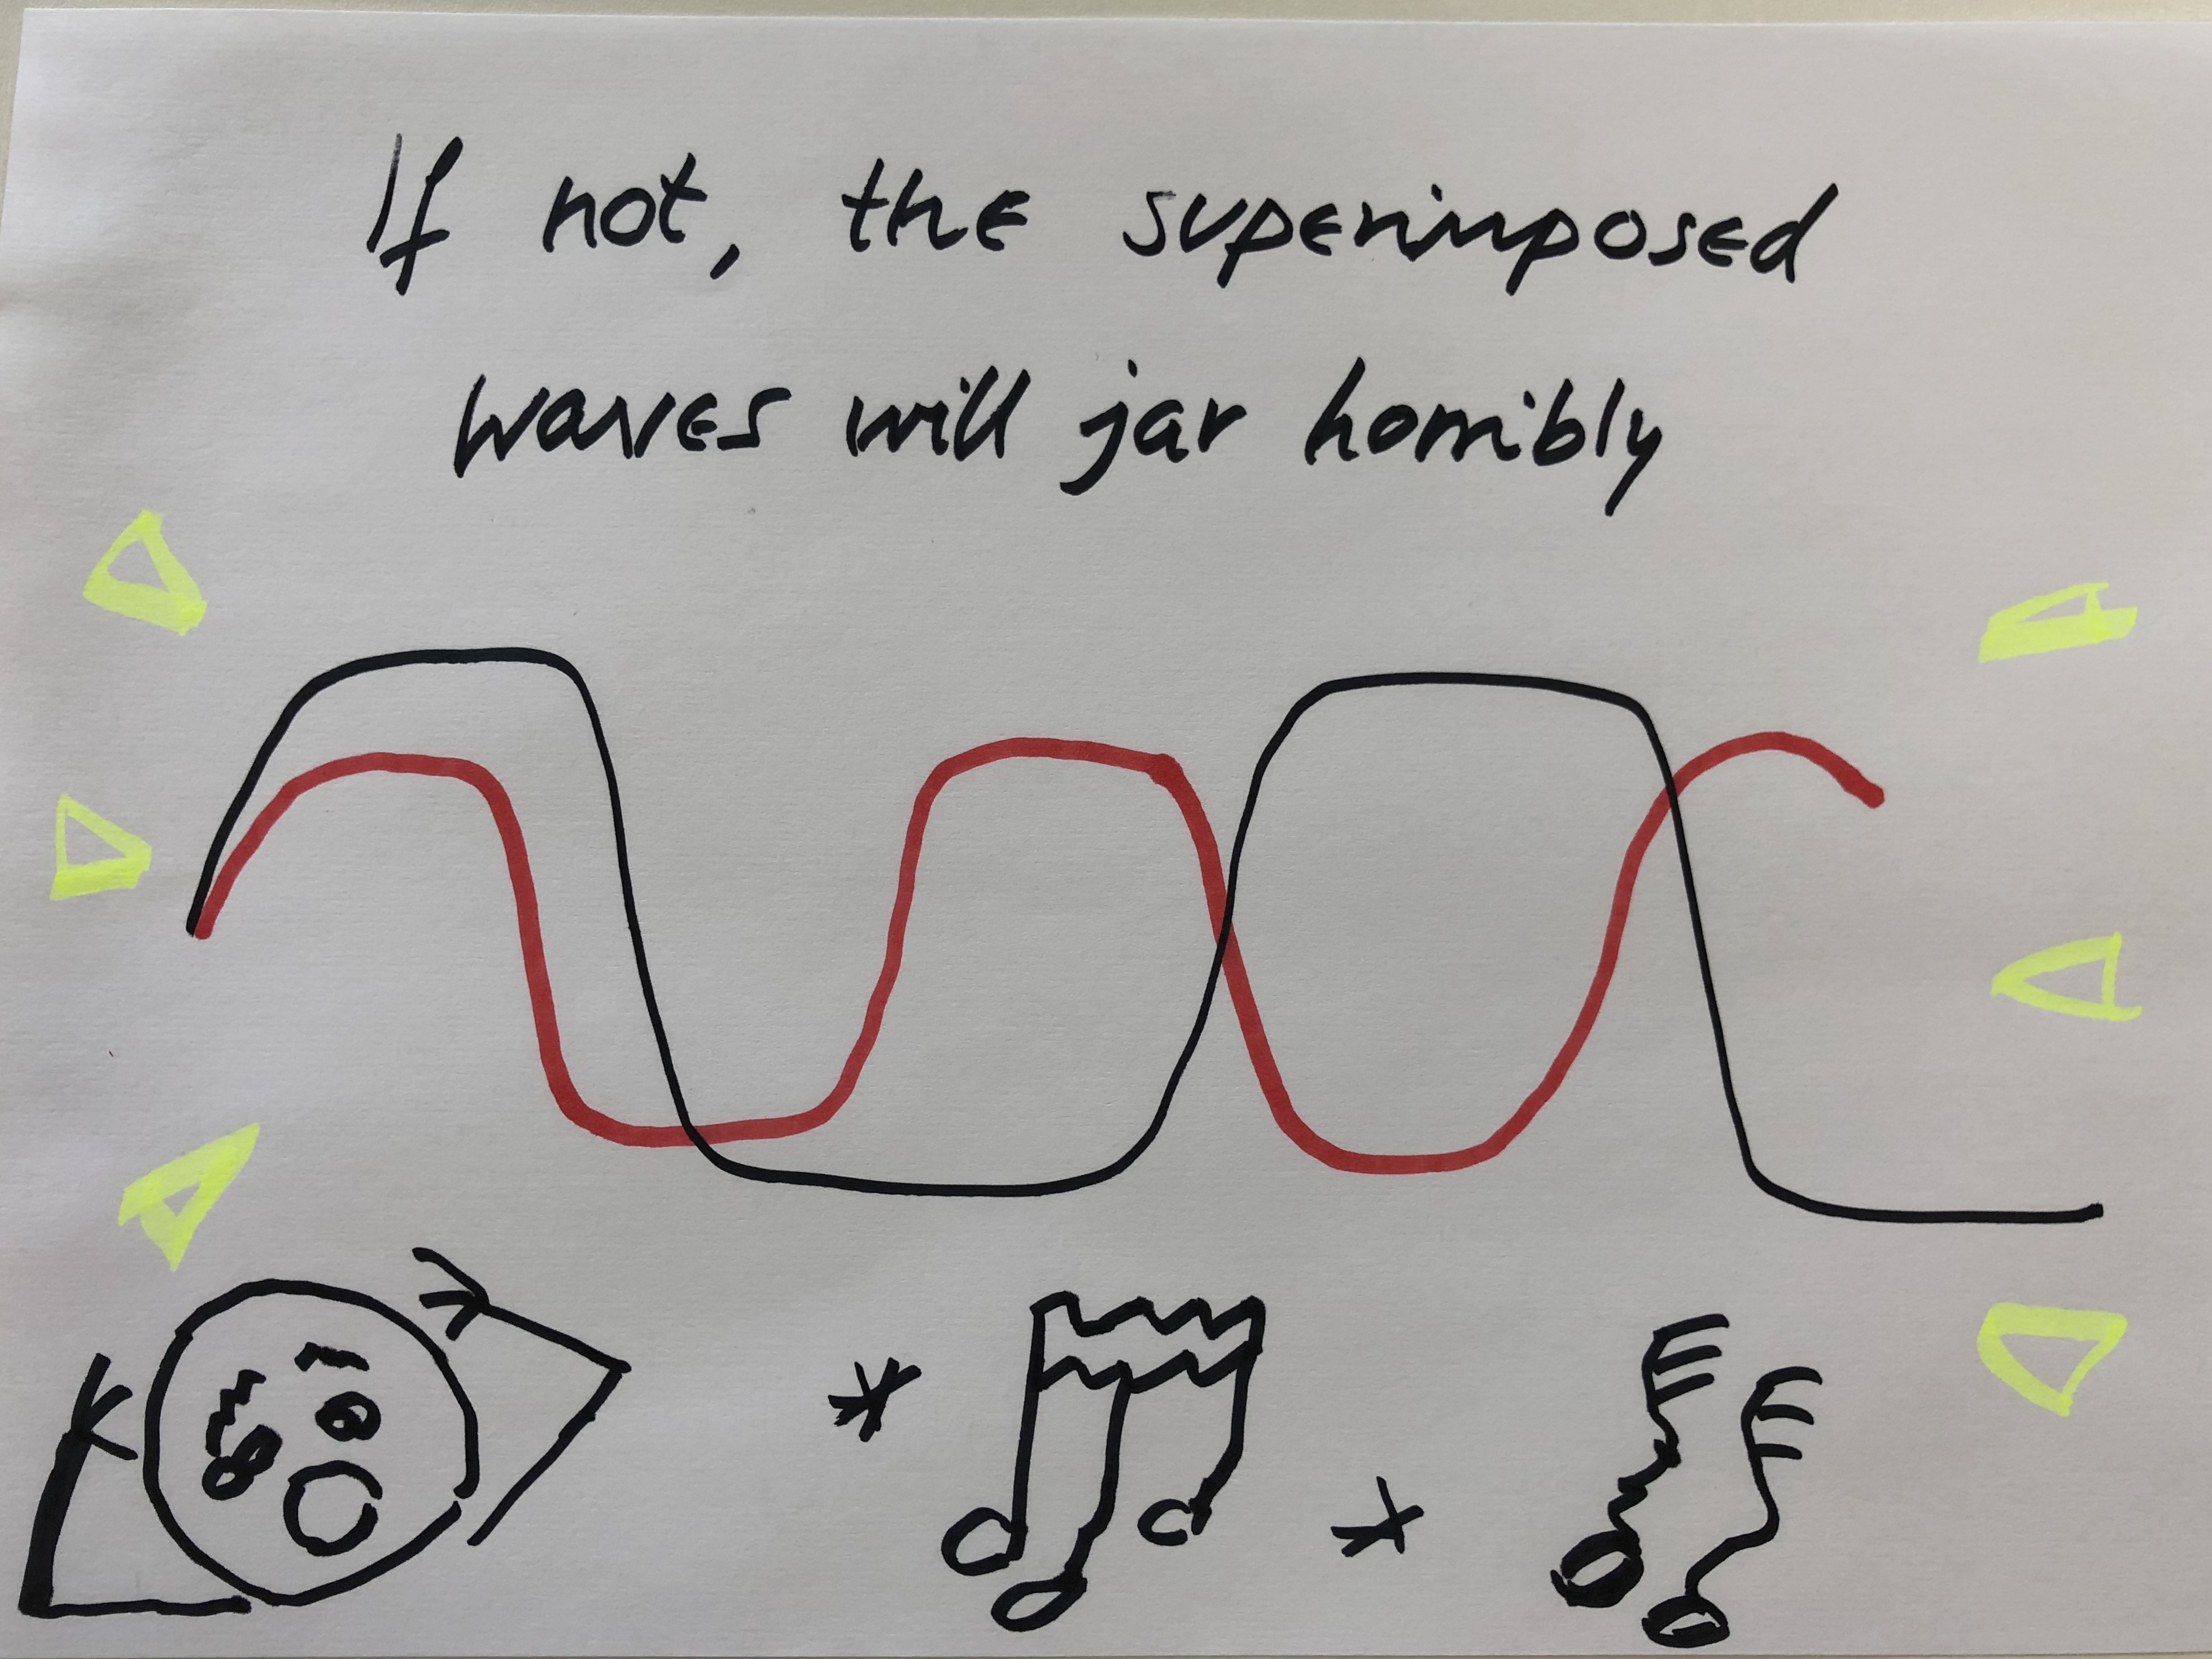 If not, the superimposed
waves will jar horribly